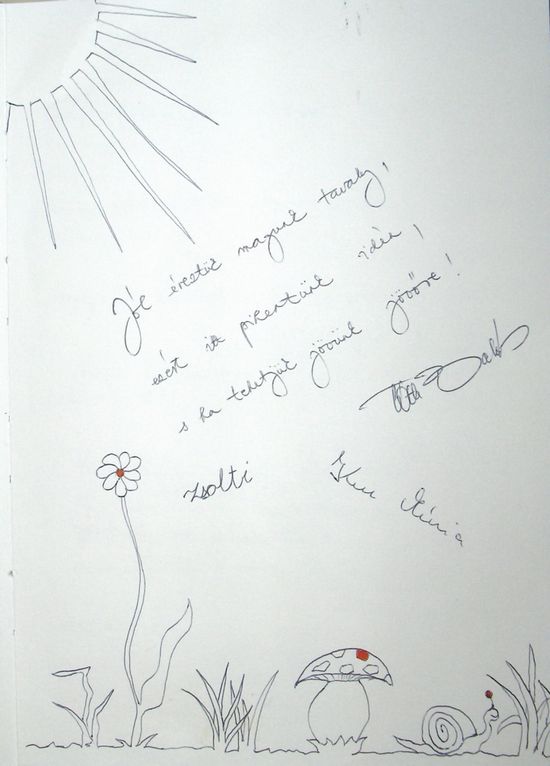 Jól éreztük magunk tavaly,
ezért itt pihentünk idén,
s ha tehetjük jövünk jövőre!
Zsolti
Kun Mária